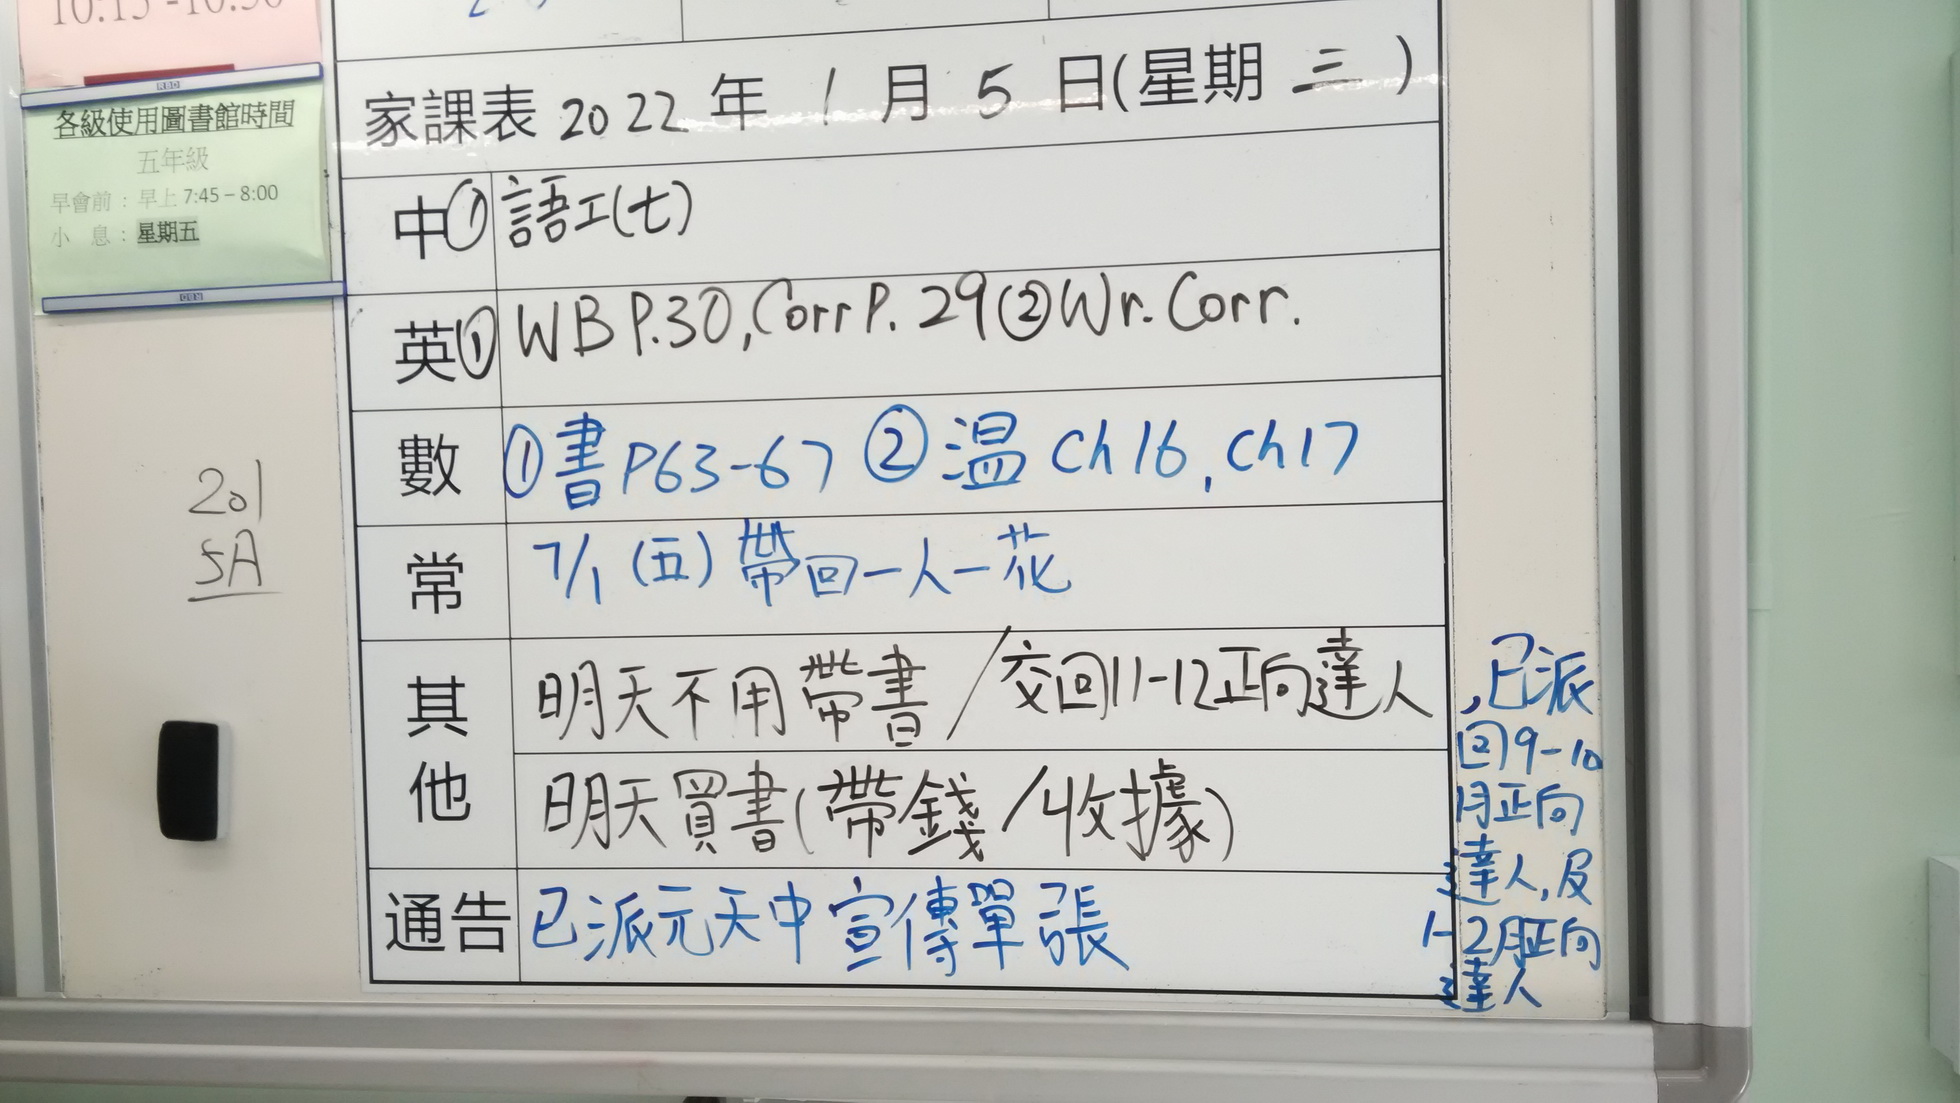 10:15 -10:30
各級使用圖書館時間
五年級
早會前：早上 7:45 – 8:00
小 息：星期五
201
5A
家課表 2022 年 1 月 5 日(星期 三 )
中 ① 語工(七)
英 ① WB P.30, Corr P. 29 ② Wr. Corr.
數 ① 書 P63-67 ② 温 Ch 16, Ch 17
常 7/1 (五) 帶回一人一花
其他 明天不用帶書 / 交回11-12正向達人
,已派
回9-10
月正向
達人,及
1-2月正向
達人
明天買書(帶錢 / 收據)
通告 已派元天中宣傳單張